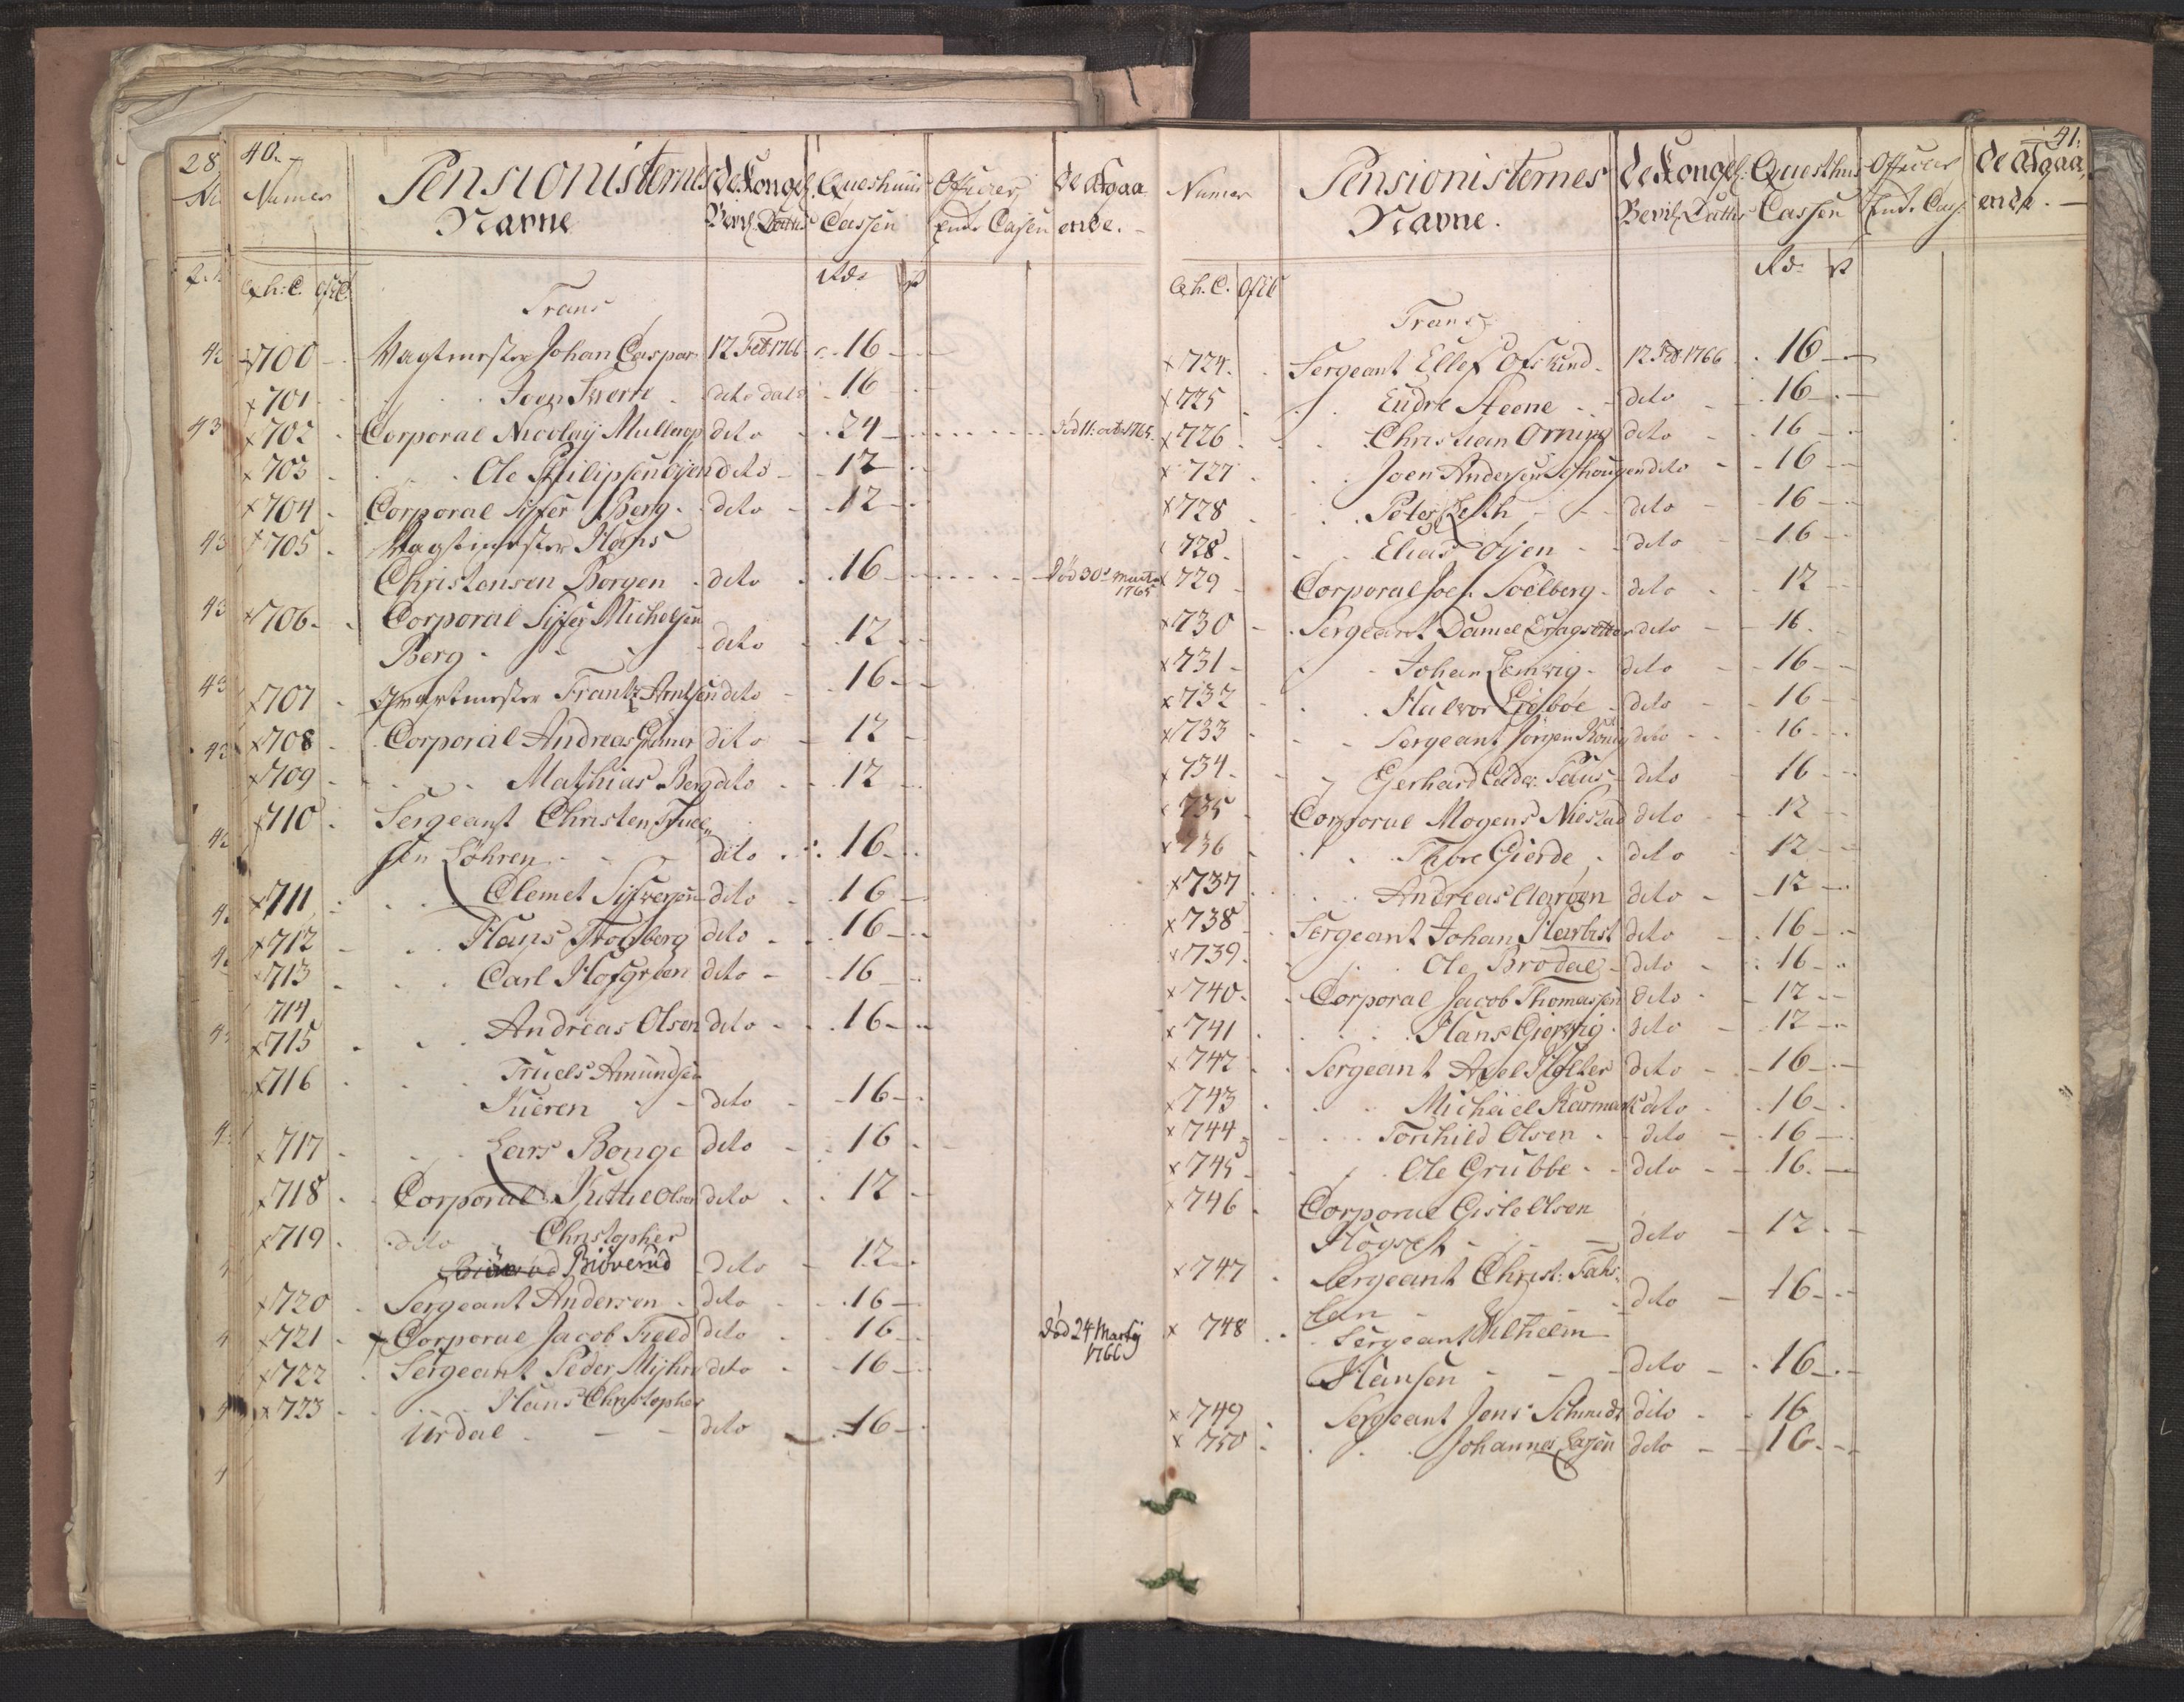 40.
Numer Pensionisternes de Kongel: Questhuus Officier de Afgaa
Navne Bevilg. Dattis Cassen Ende Casen ende.
Qh: C. Ofi C. Rdr ß
Trans
700 Vagtmester Johan Caspar 12 Feb 1766 16
701 Joen Kverte dito dato 16
702 Corporal Nicolaÿ Mullerop dito 24 död 11: oct 1765.
703 Ole Philipsen Öÿen dito 12
704 Corporal Sifer Berg dito 12
705 Vagtmester Hans
Christensen Borgen dito 16 död 30t Marti
1765
706 Corporal Sifer Michelsen
Berg dito 12
707 Qvartmester Frantz Arntsen dito 16
708 Corporal Andreas Gramer dito 12
709 Mathias Berg dito 12
710 Sergeant Christen Truel
sen Löhren dito 16
711 Clemet Sifversön dito 16
712 Hans Trogberg dito 16
713 Carl Hofgröen dito 16
714
715 Andreas Olsen dito 16
716 Truels Amundsen
Kueren dito 16
717 Lars Bonge dito 16
718 Corporal Kittil Olsen dito 12
719 dito Christopher
Biöverud dito 12
720 Sergeant Andersen dito 16
721 Corporal Jacob Field dito 16 död 24 Martÿ
1766
722 Sergeant Peder Mÿhre dito 16
723 Hans Christopher
Urdal dito 16
41.
Numer Pensionisternes de Kongel: Questhus Officier de Afgaa
Navne. Bevilg Dattis Cassen Ende Cass: ende.
Qh. C. Ofi C Rdr ß
Trans
724. Sergeant Ellef Ofslund 12 Feb 1766 16
725 Eudre Steene dito 16
726 Christian Orning dito 16
727 Joen Andersen Ashougen dito 16
728 Peter Leth dito 16
728. Elias Öÿen dito 16
729 Corporal Joch. Soelberg dito 12
730 Sergeant Daniel Dragstetter dito 16
731 Johan Lemvig dito 16
732 Halvor Eidböe dito 16
733 Sergeant Jörgen König dito 16
734 Gerhard Calder: Paus dito 16
735 Corporal Mogens Nielstad dito 12
736 Thore Gierde dito 12
737 Andreas Aaröen dito 12
738 Sergeant Johan Harbst dito 16
739. Ole Brodal dito 16
740. Corporal Jacob Thomassen dito 12
741 Hans Gierwig dito 12
742 Sergeant Axel Holter dito 16
743 Michael Karmark dito 16
744 Torchild Olsen dito 16
745 Ole Grubbe dito 16
746 Corporal Gisle Olsen
Hogset dito 12
747 Sergeant Christ: Fahs
lan dito 16
748 Sergeant Wilhelm
Hansen dito 16
749 Sergeant Jens Schmidt dito 16
750 Johannes Lasen dito 16